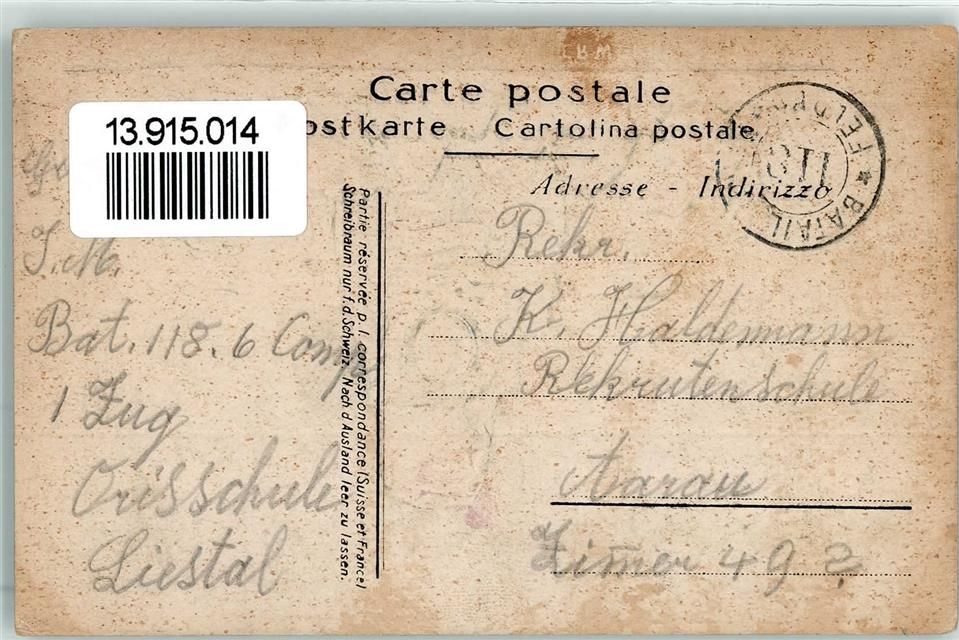 Carte postale
13.915.014
ostkarte Cartolina postale
Adresse - Indirizzo
FELDPOST
118
★ BATAIL
Partie réservée p. l. correspondance (Suisse et France)
Schreibraum nur f. d. Schweiz. Nach d Ausland leer zu lassen.
J. M.
Bat. 118. 6 Comp
1 Zug
Liestal
Rekr.
K. Haldemann
Rekrutenschule
Aarau
Zimer 49 2